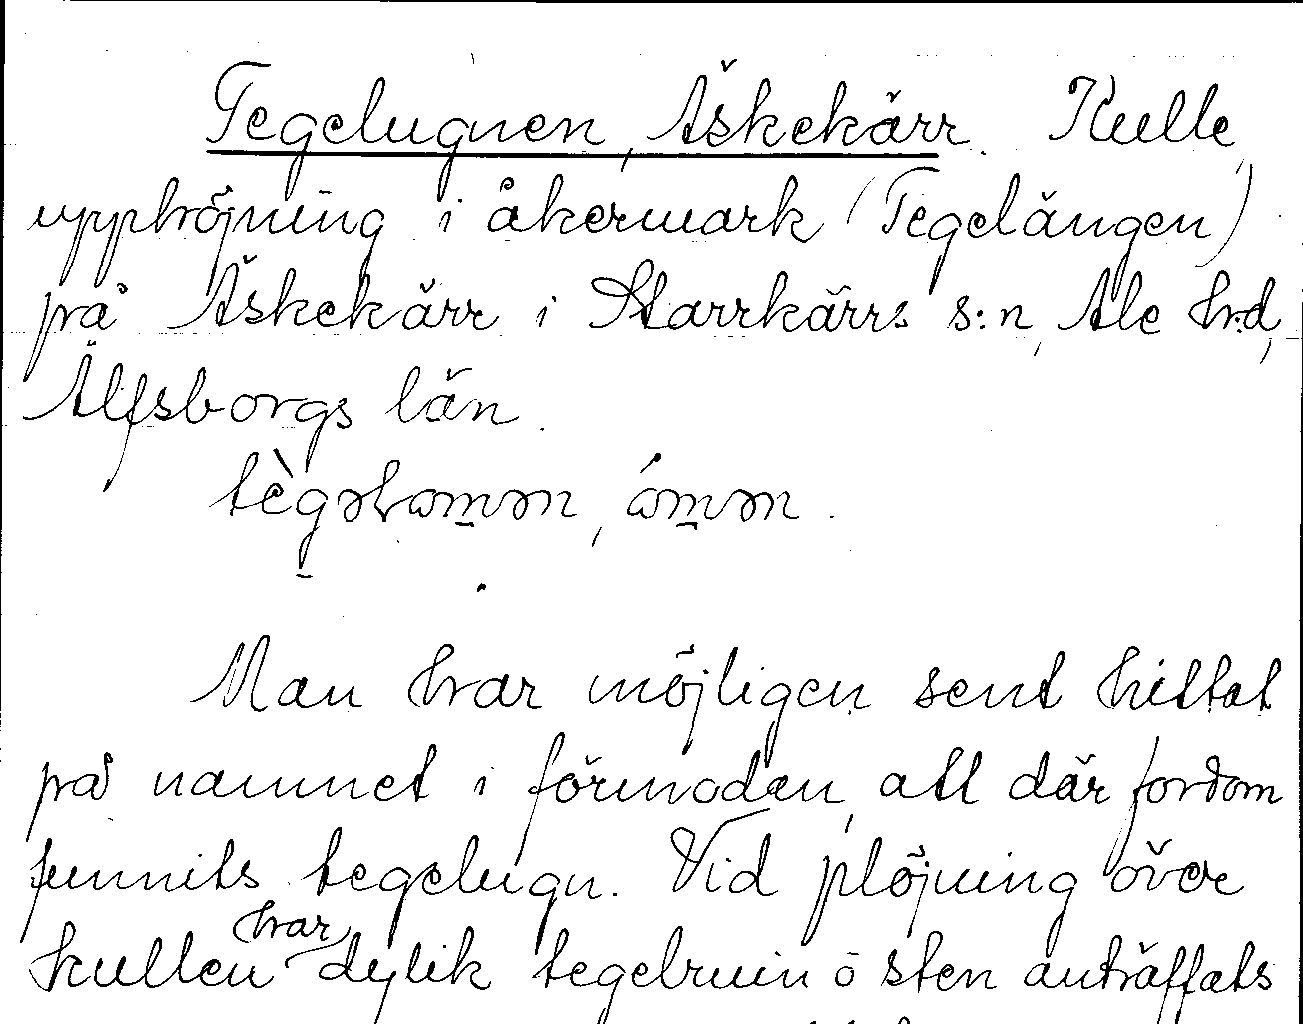 Tegelugnen, Äskekärr. Kulle,
upphöjning i åkermark (Tegelängen)
på Äskekärr i Starrkärrs s:n, Ale hrd,
Älfsborgs län.
tègəlɷmən, ɷ́mən.
Man har möjligen sent hittat
på namnet i förmodan, att där fordom
funnits tegelugn. Vid plöjning över
kullen har dylik tegelruin o sten anträffats